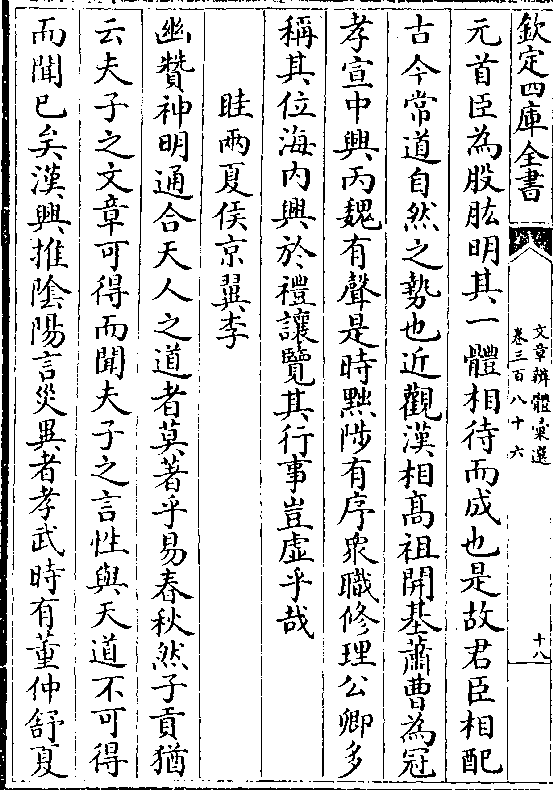 欽定四庫全書
文章辨體彙選
卷三百八十六
十八
元首臣為股肱明其一體相待而成也是故君臣相配
古今常道自然之勢也近觀漢相髙祖開基蕭曹為冠
孝宣中興丙魏有聲是時黜陟有序衆職修理公卿多
稱其位海内興於禮讓覽其行事豈虚乎哉
眭兩夏侯京翼李
幽贊神明通合天人之道者莫著乎易春秋然子貢猶
云夫子之文章可得而聞夫子之言性與天道不可得
而聞已矣漢興推陰陽言災異者孝武時有董仲舒夏